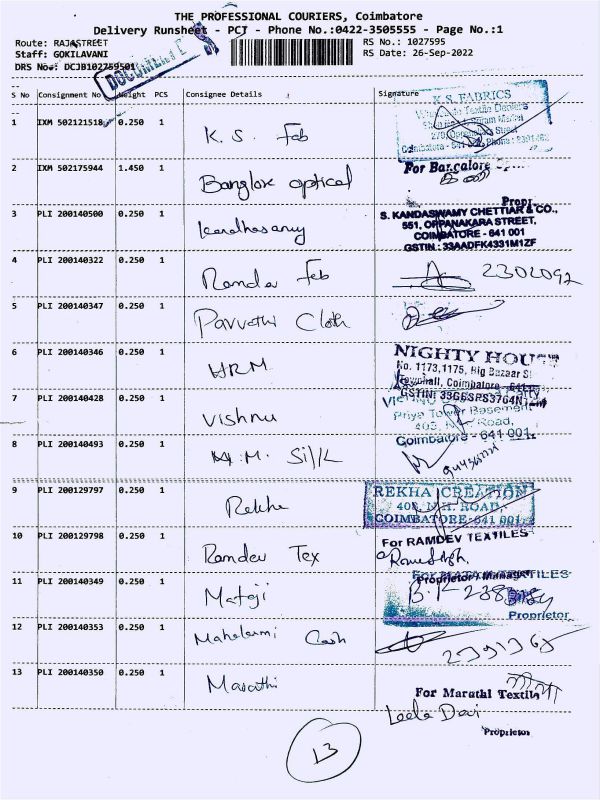 THE PROFESSIONAL COURIERS, Coimbatore
Delivery Runsheet - PCT - Phone No.:0422-3505555 - Page No.:1
Route: RAJASTREET
RS No.: 1027595
Staff: GOKILAVANI
RS Date: 26-Sep-2022
DRS No.: DCJB102759501
S No Consignment No Weight PCS Consignee Details Signature
1 IXM 502121518 0.250 1 K. S. Fab
K.S. FABRICS
2 IXM 502175944 1.450 1 Banglore optical
For Bangalore
Propr
3 PLI 200140500 0.250 1 Kandhasamy
S. KANDASWAMY CHETTIAR & CO.,
551, OPPANAKARA STREET,
COIMBATORE - 641 001
GSTIN : 33AADFK4331M1ZF
4 PLI 200140322 0.250 1 Ramdev Feb
2302092
5 PLI 200140347 0.250 1 Parvathi Cloth
6 PLI 200140346 0.250 1 HRM
NIGHTY HOUSE
No. 1173,1175, Big Bazaar St
Townhall, Coimbatore - 641
7 PLI 200140428 0.250 1 Vishnu
Priya Tower Basement
403, Road,
Coimbatore - 641 001.
8 PLI 200140493 0.250 1 M. M. Silk
9 PLI 200129797 0.250 1 Rekha
REKHA CREATION
403, M.H. ROAD,
COIMBATORE-641 001
10 PLI 200129798 0.250 1 Ramdev Tex
For RAMDEV TEXTILES
11 PLI 200140349 0.250 1 Mataji
Proprietor / Manager
Proprietor
12 PLI 200140353 0.250 1 Mahalaxmi Cash
2391368
13 PLI 200140350 0.250 1 Marathi
For Maruthi Textile
Leela Devi
Proprietor
13